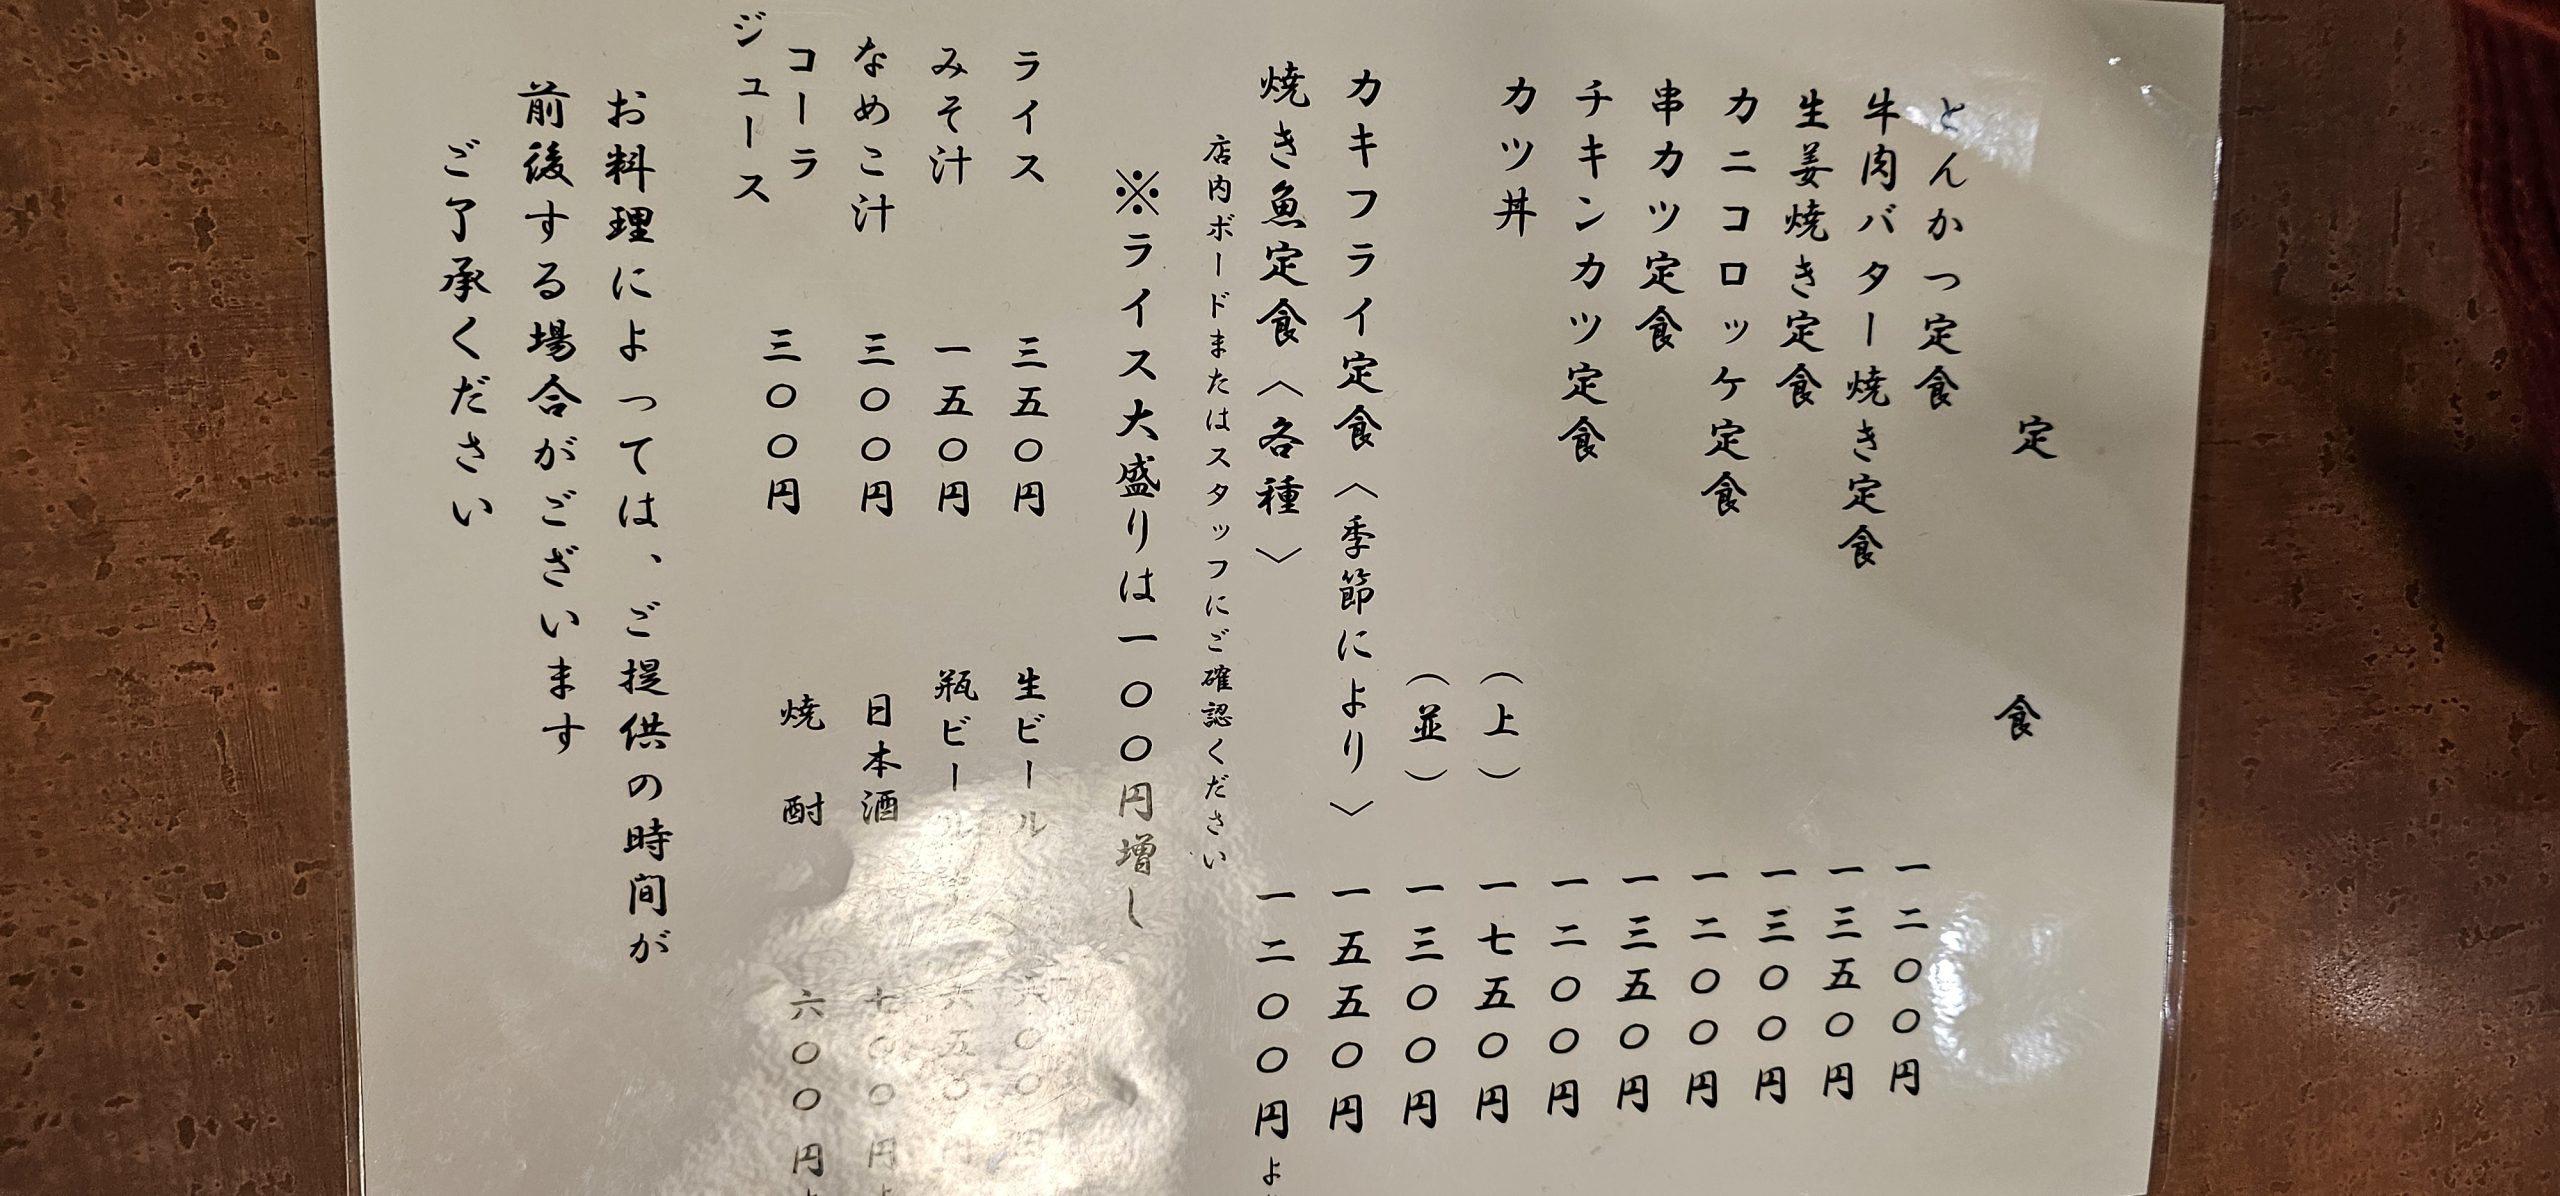 定食
とんかつ定食 一二〇〇円
牛肉バター焼き定食 一三五〇円
生姜焼き定食 一三〇〇円
カニコロッケ定食 一二〇〇円
串カツ定食 一三五〇円
チキンカツ定食 一二〇〇円
カツ丼 (上) 一七五〇円
(並) 一三〇〇円
カキフライ定食〈季節により〉 一五五〇円
焼き魚定食〈各種〉 一二〇〇円よ
店内ボードまたはスタッフにご確認ください
※ライス大盛りは一〇〇円増し
ライス 三五〇円 生ビール 六〇〇円
みそ汁 一五〇円 瓶ビール 六五〇円
なめこ汁 三〇〇円 日本酒 七〇〇円
コーラ
ジュース 三〇〇円 焼酎 六〇〇円
お料理によっては、ご提供の時間が
前後する場合がございます
ご了承ください